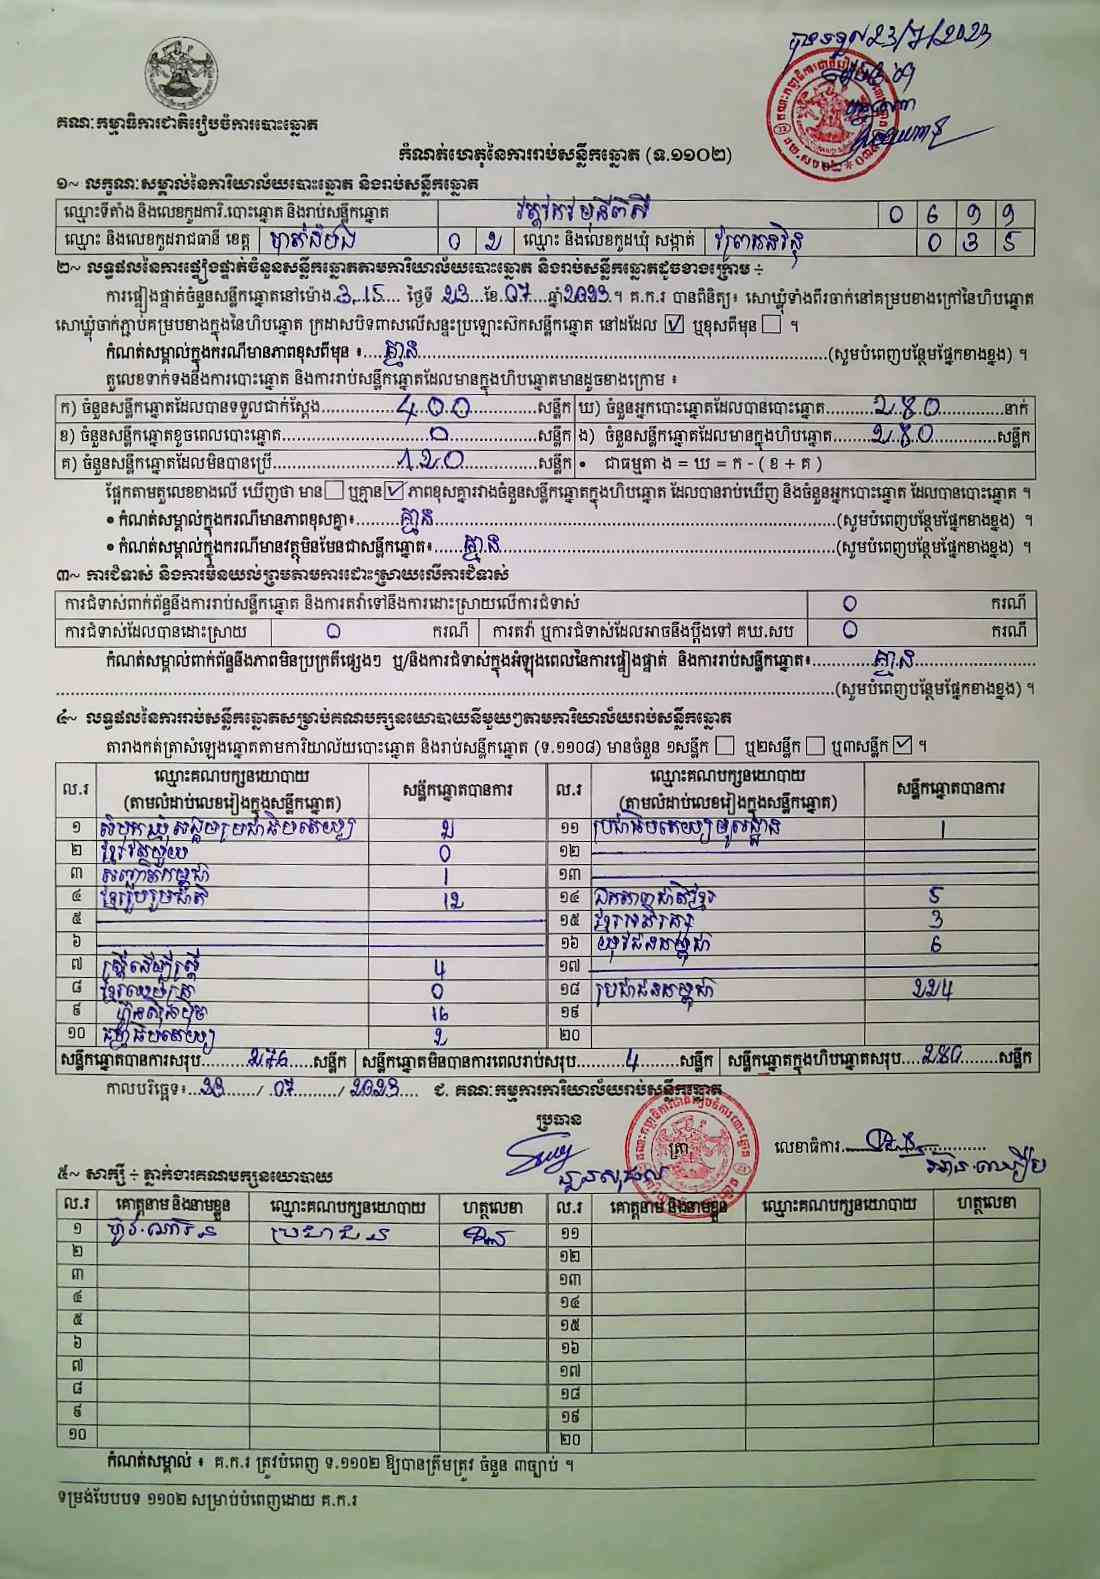 បានទទួល 23/7/2023
គណៈកម្មាធិការជាតិរៀបចំការបោះឆ្នោត
កំណត់ហេតុនៃការរាប់សន្លឹកឆ្នោត (ទ.១១០២)
១~ លក្ខណៈសម្គាល់នៃការិយាល័យបោះឆ្នោត និងរាប់សន្លឹកឆ្នោត
ឈ្មោះទីតាំង និងលេខកូដការិ.បោះឆ្នោត និងរាប់សន្លឹកឆ្នោត 0 6 9 9
ឈ្មោះ និងលេខកូដរាជធានី ខេត្ត បាត់ដំបង 0 2 ឈ្មោះ និងលេខកូដឃុំ សង្កាត់ 0 3 5
២~ លទ្ធផលនៃការផ្ទៀងផ្ទាត់ចំនួនសន្លឹកឆ្នោតតាមការិយាល័យបោះឆ្នោត និងរាប់សន្លឹកឆ្នោតដូចខាងក្រោម ÷
ការផ្ទៀងផ្ទាត់ចំនួនសន្លឹកឆ្នោតនៅម៉ោង.3.15.... ថ្ងៃទី 23 ខែ.07....ឆ្នាំ2023.។ គ.ក.រ បានពិនិត្យ៖ សោឃ្លុំទាំងពីរចាក់នៅគម្របខាងក្រៅនៃហិបឆ្នោត
សោឃ្លុំចាក់ភ្ជាប់គម្របខាងក្នុងនៃហិបឆ្នោត ក្រដាសបិទពាសលើសន្ទះប្រឡោះស៊កសន្លឹកឆ្នោត នៅដដែល ☑ ឬខុសពីមុន ☐ ។
កំណត់សម្គាល់ក្នុងករណីមានភាពខុសពីមុន ៖....គ្មាន....(សូមបំពេញបន្ថែមផ្នែកខាងខ្នង) ។
តួលេខទាក់ទងនឹងការបោះឆ្នោត និងការរាប់សន្លឹកឆ្នោតដែលមានក្នុងហិបឆ្នោតមានដូចខាងក្រោម ៖
ក) ចំនួនសន្លឹកឆ្នោតដែលបានទទួលជាក់ស្តែង....400....សន្លឹក ឃ) ចំនួនអ្នកបោះឆ្នោតដែលបានបោះឆ្នោត....280....នាក់
ខ) ចំនួនសន្លឹកឆ្នោតខូចពេលបោះឆ្នោត....0....សន្លឹក ង) ចំនួនសន្លឹកឆ្នោតដែលមានក្នុងហិបឆ្នោត....280....សន្លឹក
គ) ចំនួនសន្លឹកឆ្នោតដែលមិនបានប្រើ....120....សន្លឹក • ជាធម្មតា ង = ឃ = ក - ( ខ + គ )
ផ្អែកតាមតួលេខខាងលើ ឃើញថា មាន ☐ ឬគ្មាន ☑ ភាពខុសគ្នារវាងចំនួនសន្លឹកឆ្នោតក្នុងហិបឆ្នោត ដែលបានរាប់ឃើញ និងចំនួនអ្នកបោះឆ្នោត ដែលបានបោះឆ្នោត ។
• កំណត់សម្គាល់ក្នុងករណីមានភាពខុសគ្នា៖....គ្មាន....(សូមបំពេញបន្ថែមផ្នែកខាងខ្នង) ។
• កំណត់សម្គាល់ក្នុងករណីមានវត្ថុមិនមែនជាសន្លឹកឆ្នោត៖....គ្មាន....(សូមបំពេញបន្ថែមផ្នែកខាងខ្នង) ។
៣~ ការជំទាស់ និងការមិនយល់ព្រមតាមការដោះស្រាយលើការជំទាស់
ការជំទាស់ពាក់ព័ន្ធនឹងការរាប់សន្លឹកឆ្នោត និងការតវ៉ាទៅនឹងការដោះស្រាយលើការជំទាស់ 0 ករណី
ការជំទាស់ដែលបានដោះស្រាយ 0 ករណី ការតវ៉ា ឬការជំទាស់ដែលអាចនឹងប្តឹងទៅ គឃ.សប 0 ករណី
កំណត់សម្គាល់ពាក់ព័ន្ធនឹងភាពមិនប្រក្រតីផ្សេងៗ ឬ/និងការជំទាស់ក្នុងអំឡុងពេលនៃការផ្ទៀងផ្ទាត់ និងការរាប់សន្លឹកឆ្នោត៖....គ្មាន....
....(សូមបំពេញបន្ថែមផ្នែកខាងខ្នង) ។
៤~ លទ្ធផលនៃការរាប់សន្លឹកឆ្នោតសម្រាប់គណបក្សនយោបាយនីមួយៗតាមការិយាល័យរាប់សន្លឹកឆ្នោត
តារាងកត់ត្រាសំឡេងឆ្នោតតាមការិយាល័យបោះឆ្នោត និងរាប់សន្លឹកឆ្នោត (ទ.១១០៨) មានចំនួន ១សន្លឹក ☐ ឬ២សន្លឹក ☐ ឬ៣សន្លឹក ☑ ។
ល.រ ឈ្មោះគណបក្សនយោបាយ (តាមលំដាប់លេខរៀងក្នុងសន្លឹកឆ្នោត) សន្លឹកឆ្នោតបានការ ល.រ ឈ្មោះគណបក្សនយោបាយ (តាមលំដាប់លេខរៀងក្នុងសន្លឹកឆ្នោត) សន្លឹកឆ្នោតបានការ
១ សំបុកឃ្មុំសង្គមប្រជាធិបតេយ្យ 2 ១១ ប្រជាធិបតេយ្យមូលដ្ឋាន 1
២ 0 ១២
៣ សញ្ជាតិកម្ពុជា 1 ១៣
៤ ខ្មែររួបរួមជាតិ 12 ១៤ ឯកភាពជាតិខ្មែរ 5
៥ ១៥ ខ្មែរអភិរក្ស 3
៦ ១៦ យុវជនកម្ពុជា 6
៧ ស្ត្រីដើម្បីស្ត្រី 4 ១៧
៨ 0 ១៨ ប្រជាជនកម្ពុជា 224
៩ ហ៊្វុនស៊ិនប៉ិច 16 ១៩
១០ 2 ២០
សន្លឹកឆ្នោតបានការសរុប....276....សន្លឹក សន្លឹកឆ្នោតមិនបានការពេលរាប់សរុប....4....សន្លឹក សន្លឹកឆ្នោតក្នុងហិបឆ្នោតសរុប....280....សន្លឹក
កាលបរិច្ឆេទ៖...23....../.07........./.2023.... ជ. គណៈកម្មការការិយាល័យរាប់សន្លឹកឆ្នោត
ប្រធាន
ត្រា
លេខាធិការ
៥~ សាក្សី ÷ ភ្នាក់ងារគណបក្សនយោបាយ
ល.រ គោត្តនាម និងនាមខ្លួន ឈ្មោះគណបក្សនយោបាយ ហត្ថលេខា ល.រ គោត្តនាម និងនាមខ្លួន ឈ្មោះគណបក្សនយោបាយ ហត្ថលេខា
១ ប្រជាជន ១១
២ ១២
៣ ១៣
៤ ១៤
៥ ១៥
៦ ១៦
៧ ១៧
៨ ១៨
៩ ១៩
១០ ២០
កំណត់សម្គាល់ ៖ គ.ក.រ ត្រូវបំពេញ ទ.១១០២ ឱ្យបានត្រឹមត្រូវ ចំនួន ៣ច្បាប់ ។
ទម្រង់បែបបទ ១១០២ សម្រាប់បំពេញដោយ គ.ក.រ